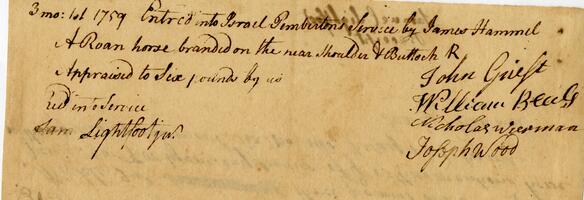 3 mo: 1st 1759 Entred into Israel Pembertons Service by James Hammel
A Roan horse branded on the near Shoulder & Buttock R
Appraised to Six pounds by us
John Guest
William Beals
Nicholas Wierman
Joseph Wood
red into Service
Sam Lightfoot junr